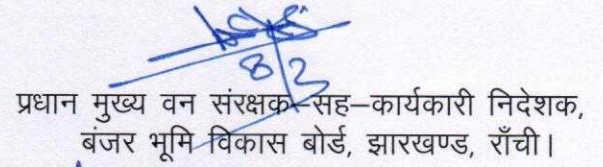 8/2
प्रधान मुख्य वन संरक्षक–सह–कार्यकारी निदेशक,
बंजर भूमि विकास बोर्ड, झारखण्ड, राँची।